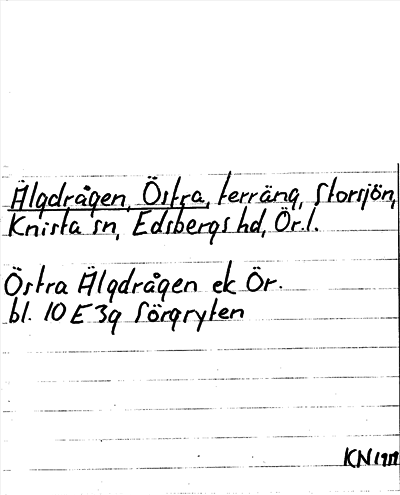 Älgdrågen, Östra, terräng, Storsjön,
Knista sn, Edsbergs hd, Ör.l.
Östra Älgdrågen ek Ör.
bl. 10 E 3g Sörgryten
KN